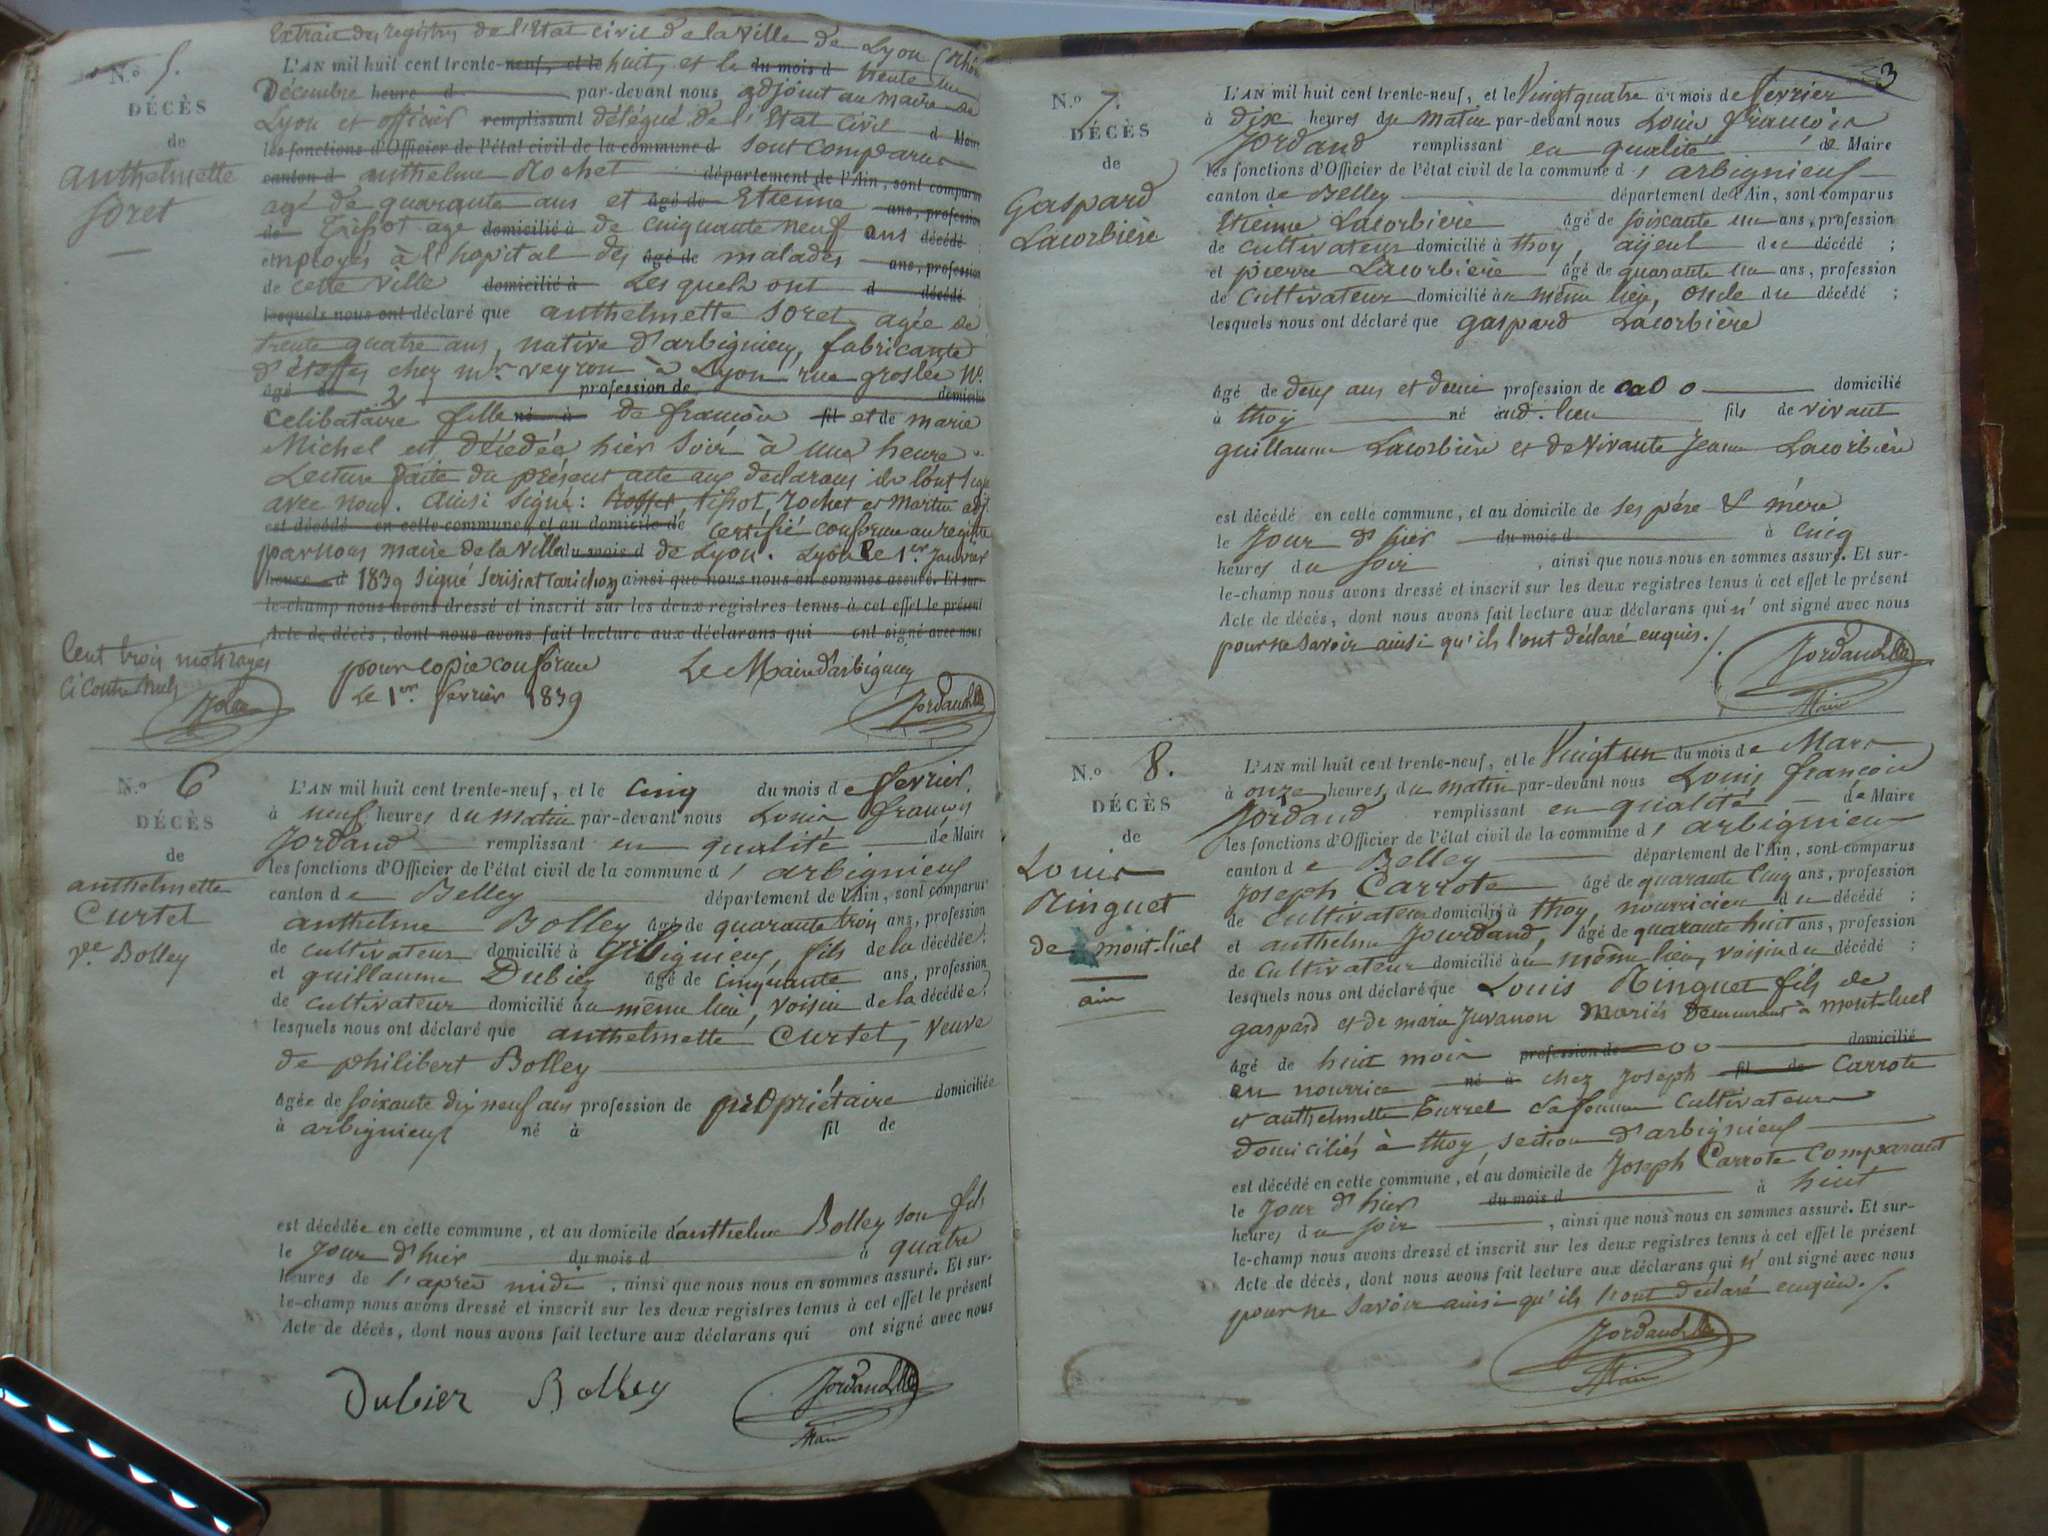 Extrait des registres de l'Etat civil de la ville de Lyon (Rhône
N.° 5.
DÉCÈS
de
anthelmette
Soret
L'AN mil huit cent trente-neuf, et le huit, et le du mois d trente un
Décembre heure d par-devant nous adjoint au maire de
Lyon et officier remplissant délégué de l'Etat civil d Maire
les fonctions d'Officier de l'état civil de la commune d sont comparus
canton d anthelme Rochet département de l'Ain, sont comparus
agé de quarante ans et âgé de Etienne ans, profession
de Tissot age domicilié à de cinquante neuf ans décédé
employés à l'hopital des âgé de malades ans, profession
de cette ville domicilié à Les quels ont d décédé
lesquels nous ont déclaré que anthelmette Soret, agée de
trente quatre ans, native d'arbignieu, fabricante
d'étoffes chez mr. veyron à Lyon rue groslée N°.
âgé de 2 profession de domicilié
celibataire fille né à de françois fil et de marie
Michel est décédée hier soir à une heure
Lecture faite du présent acte aux declarans ils l'ont signé
avec nous. ainsi signé: Rosset, tissot, rochet et martin adjt
est décédé en cette commune, et au domicile de certifié conforme au registre
par nous maire de la ville du mois d de Lyon. Lyon le 1er. Janvier
heure d 1839 signé ainsi que nous nous en sommes assuré. Et sur-
le-champ nous avons dressé et inscrit sur les deux registres tenus à cet effet le présent
Acte de décès, dont nous avons fait lecture aux déclarans qui ont signé avec nous
Cent trois mots rayés
ci contre nuls
pour copie conforme Le Maire d'arbignieu
Le 1er. fevrier 1839
Jordand
N.° 6
DÉCÈS
de
anthelmette
Curtet
ve. Bolley
L'AN mil huit cent trente-neuf, et le cinq du mois de fevrier.
à neuf heures du matin par-devant nous Louis françois
Jordand remplissant en qualité de Maire
les fonctions d'Officier de l'état civil de la commune d'arbignieux
canton de Belley département de l'Ain, sont comparus
anthelme Bolley âgé de quarante trois ans, profession
de cultivateur domicilié à arbignieux, fils de la décédée;
et guillaume Dubiez âgé de cinquante ans, profession
de cultivateur domicilié au même lieu, voisin de la décédée;
lesquels nous ont déclaré que anthelmette Curtet, veuve
de philibert Bolley
âgée de soixante dix neuf ans profession de propriétaire domiciliée
à arbignieux né à fil de
est décédée en cette commune, et au domicile d'anthelme Bolley son fils
le Jour d'hier du mois d à quatre
heures de l'après midi, ainsi que nous nous en sommes assuré. Et sur-
le-champ nous avons dressé et inscrit sur les deux registres tenus à cet effet le présent
Acte de décès, dont nous avons fait lecture aux déclarans qui ont signé avec nous
Dubier Bolley Jordand
Maire
3
N.° 7.
DÉCÈS
de
Gaspard
Lacorbière
L'AN mil huit cent trente-neuf, et le Vingt quatre du mois de fevrier
à dix heures du matin par-devant nous Louis françois
Jordand remplissant en qualité de Maire
les fonctions d'Officier de l'état civil de la commune d'arbignieux
canton de Belley département de l'Ain, sont comparus
Etienne Lacorbière âgé de soixante un ans, profession
de cultivateur domicilié à thoy, aÿeul du décédé;
et pierre Lacorbière âgé de quarante un ans, profession
de cultivateur domicilié au même lieu, oncle du décédé;
lesquels nous ont déclaré que gaspard Lacorbière
âgé de deux ans et demi profession de domicilié
à thoÿ né aud. lieu fils de vivant
guillaume Lacorbière et de vivante Jeanne Lacorbière
est décédé en cette commune, et au domicile de ses père & mère
le Jour d'hier du mois d à cinq
heures du soir, ainsi que nous nous en sommes assuré. Et sur-
le-champ nous avons dressé et inscrit sur les deux registres tenus à cet effet le présent
Acte de décès, dont nous avons fait lecture aux déclarans qui n'ont signé avec nous
pour ne savoir ainsi qu'ils l'ont déclaré enquis./.
Jordand
Maire
N.° 8.
DÉCÈS
de
Louis
Ringuet
de mont-luel
ain
L'AN mil huit cent trente-neuf, et le Vingt un du mois de Mars
à onze heures du matin par-devant nous Louis françois
Jordand remplissant en qualité de Maire
les fonctions d'Officier de l'état civil de la commune d'arbignieux
canton de Belley département de l'Ain, sont comparus
Joseph Carrote âgé de quarante cinq ans, profession
de cultivateur domicilié à thoy, nourricier du décédé;
et anthelme Jourdand, âgé de quarante huit ans, profession
de cultivateur domicilié au même lieu, voisin du décédé;
lesquels nous ont déclaré que Louis Ringuet fils de
gaspard et de marie Juvanon mariés Demeurant à mont-luel
âgé de huit mois profession de domicilié
en nourrice né à chez Joseph fil de Carrote
et anthelmette Burrel sa femme cultivateurs
domiciliés à thoy, section d'arbignieux
est décédé en cette commune, et au domicile de Joseph Carrote comparant
le Jour d'hier du mois d à huit
heures du soir, ainsi que nous nous en sommes assuré. Et sur-
le-champ nous avons dressé et inscrit sur les deux registres tenus à cet effet le présent
Acte de décès, dont nous avons fait lecture aux déclarans qui n'ont signé avec nous
pour ne savoir ainsi qu'ils l'ont déclaré enquis./.
Jordand
Maire